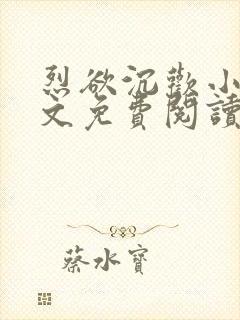 烈欲沉歡小
文免費閱讀
蔡水寶